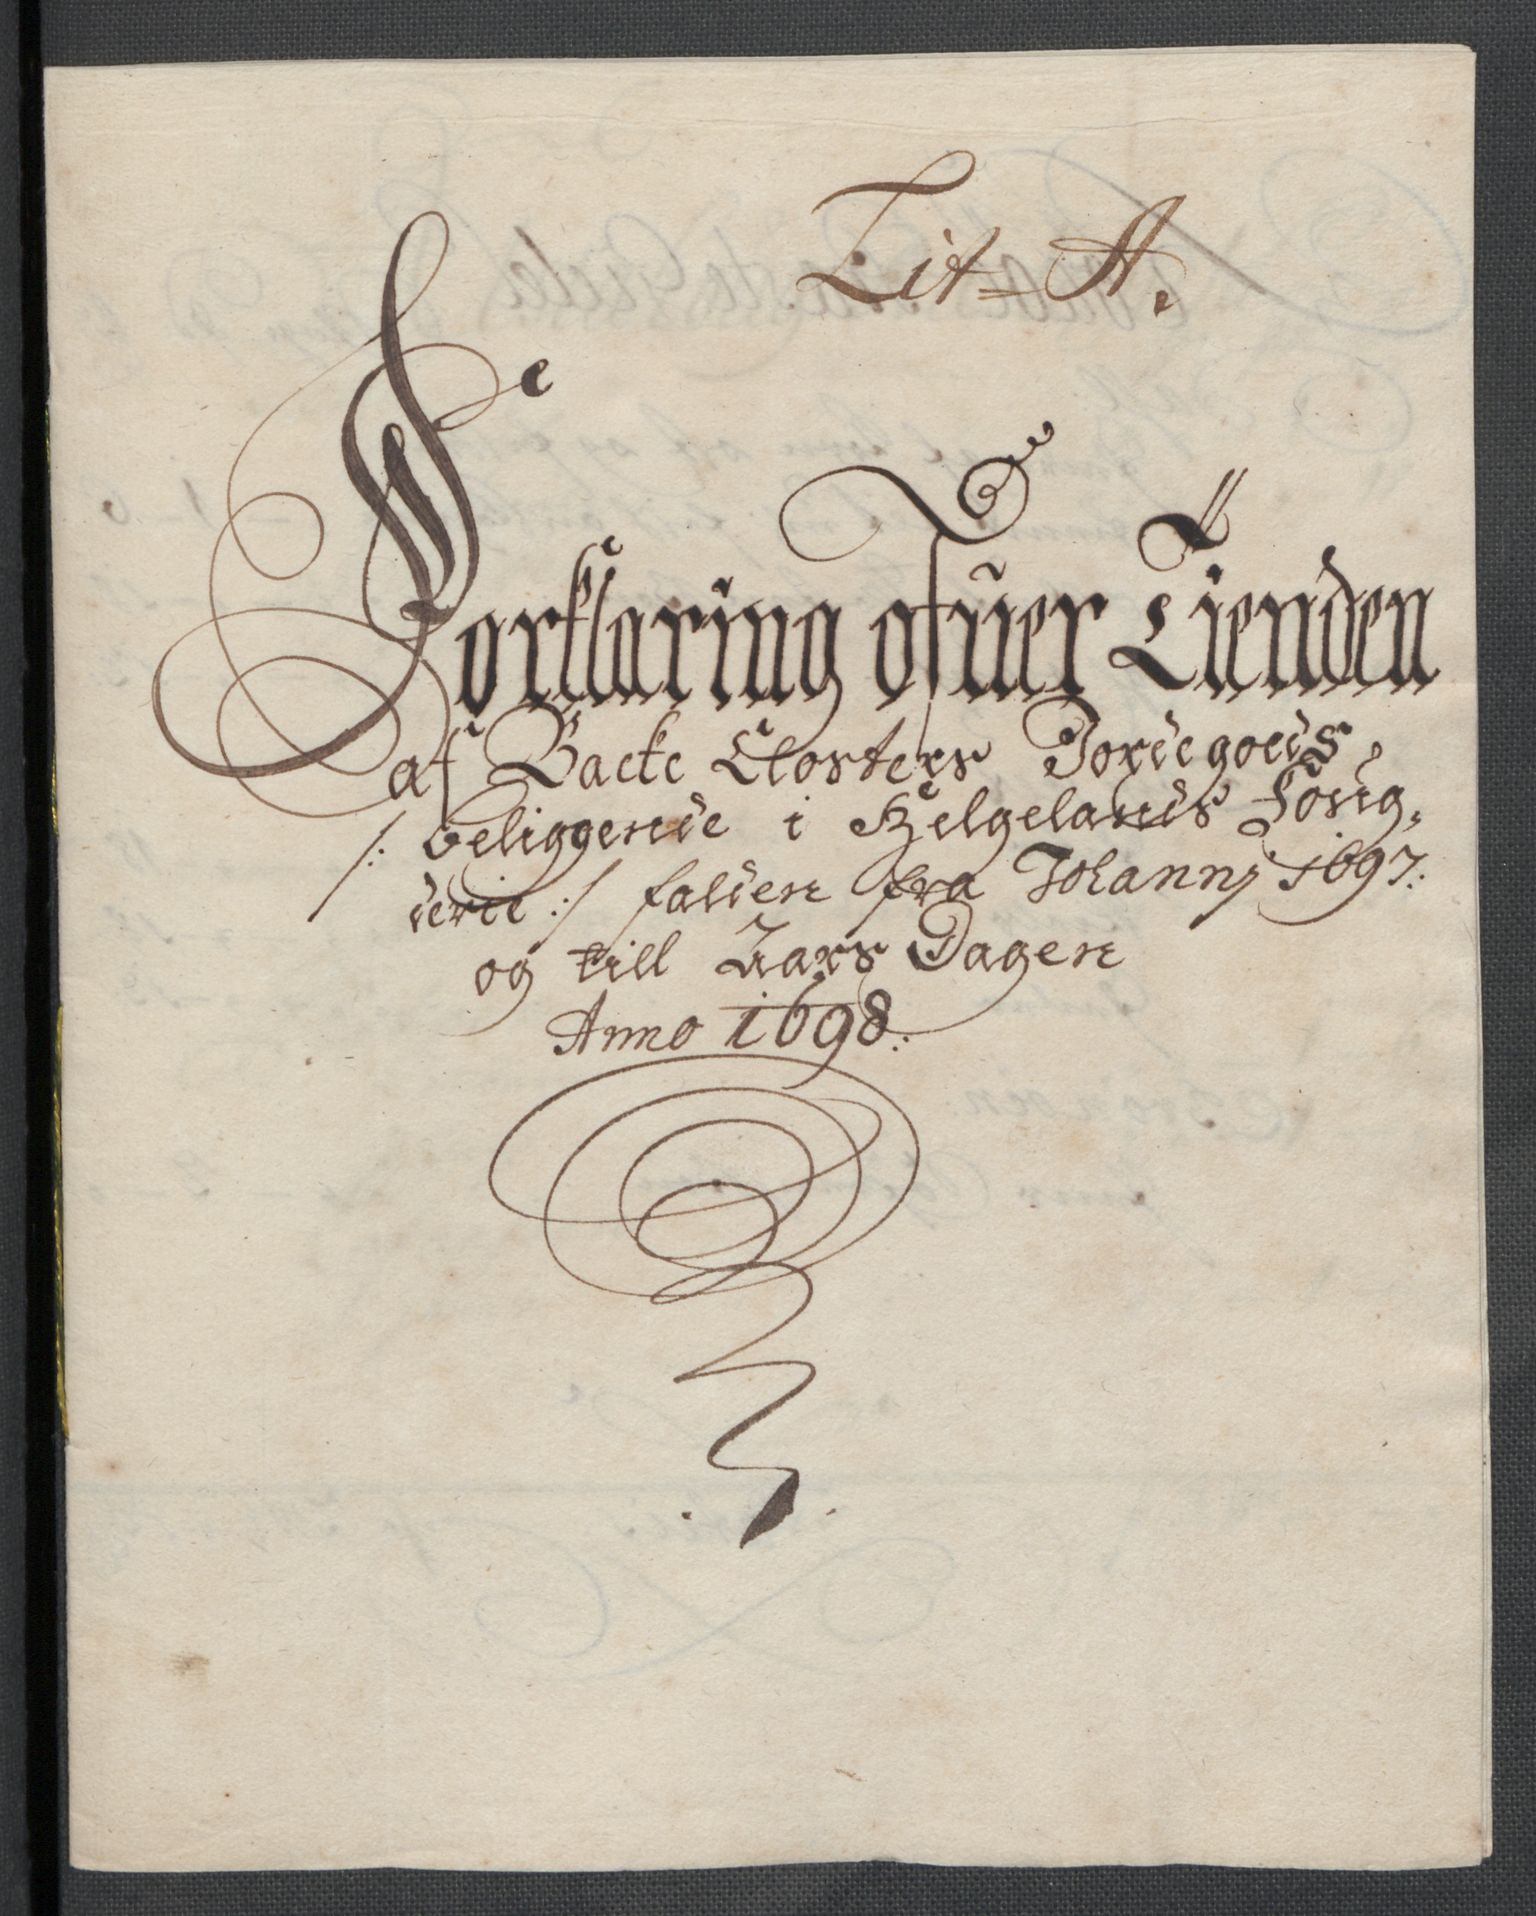 Lit= A.
Forklaring ofuer Tienden
af Backe Closters Jordegods,
/: beliggende i Helgelands Fosig,
derie :/ falden fra Johannj 1697:
og till Aars Dagen
Anno 1698: